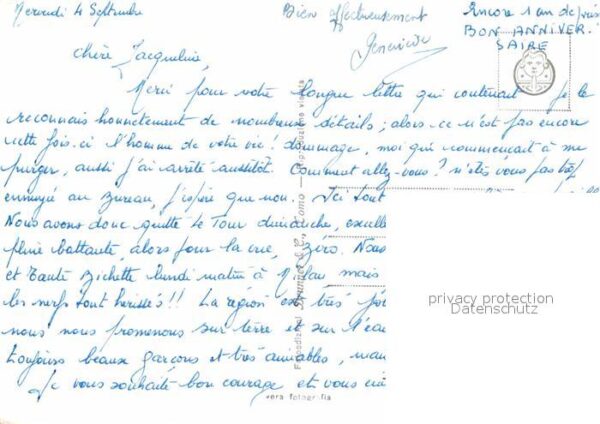 Mercredi 4 Septembre
Bien affectueusement
Geneviève
Encore 1 an de plus
BON ANNIVER.
SAIRE
Chère Jacqueline,
Merci pour votre longue lettre qui contenait je le
reconnais honnetement de nombreux détails; alors ce n'est pas encore
cette fois-ci l'homme de votre vie! dommage, moi qui commençait à me
purger, aussi j'ai arrêté aussitôt. Comment allez-vous? n'êtes vous pas trop
ennuyé au bureau, j'espère que non. Ici tout
Nous avons donc quitté le Tour dimanche, excelle
pluie battante, alors pour la vue, zéro. Nous
et Tante Bichette lundi matin à Milan mais
les nerfs tout herissés!! La région est très jo
nous nous promenons sur terre et sur l'eau
Toujours beaux garçons et très aimables,
Je vous souhaite bon courage et vous
privacy protection
Datenschutz
Fotoedizioni Brunner & C., Como — Riproduzione vietata
vera fotografia